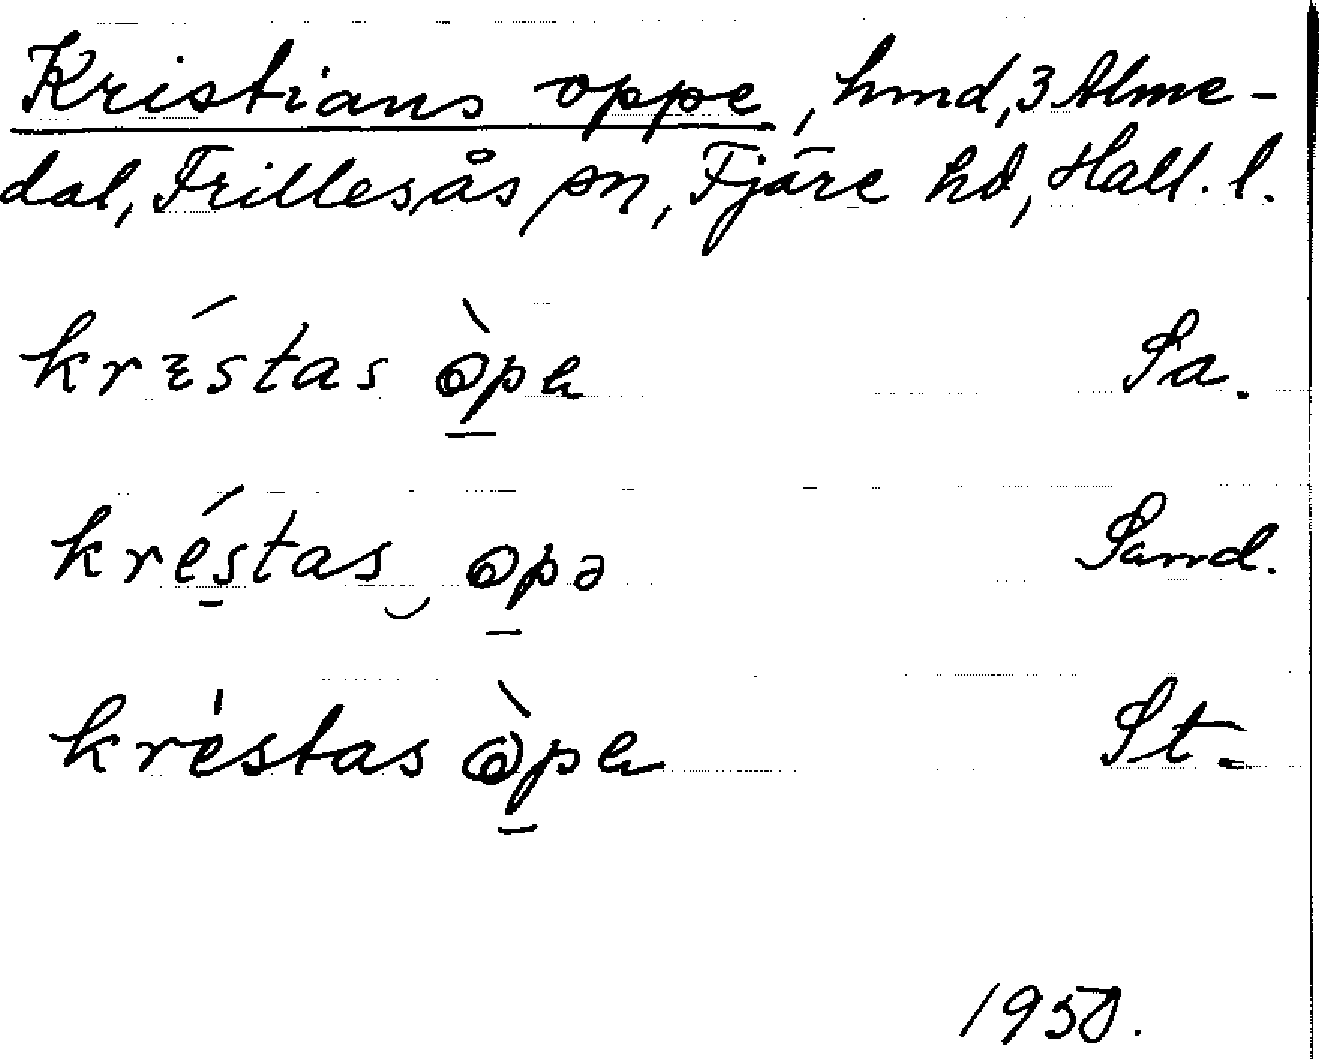 Kristians oppe, hmd, 3 Alme-
dal, Frillesås sn, Fjäre hd, Hall. l.
krɛ́stas òpe Sa.
kréstas‿opə Sand.
kréstas òpe St.
1950.